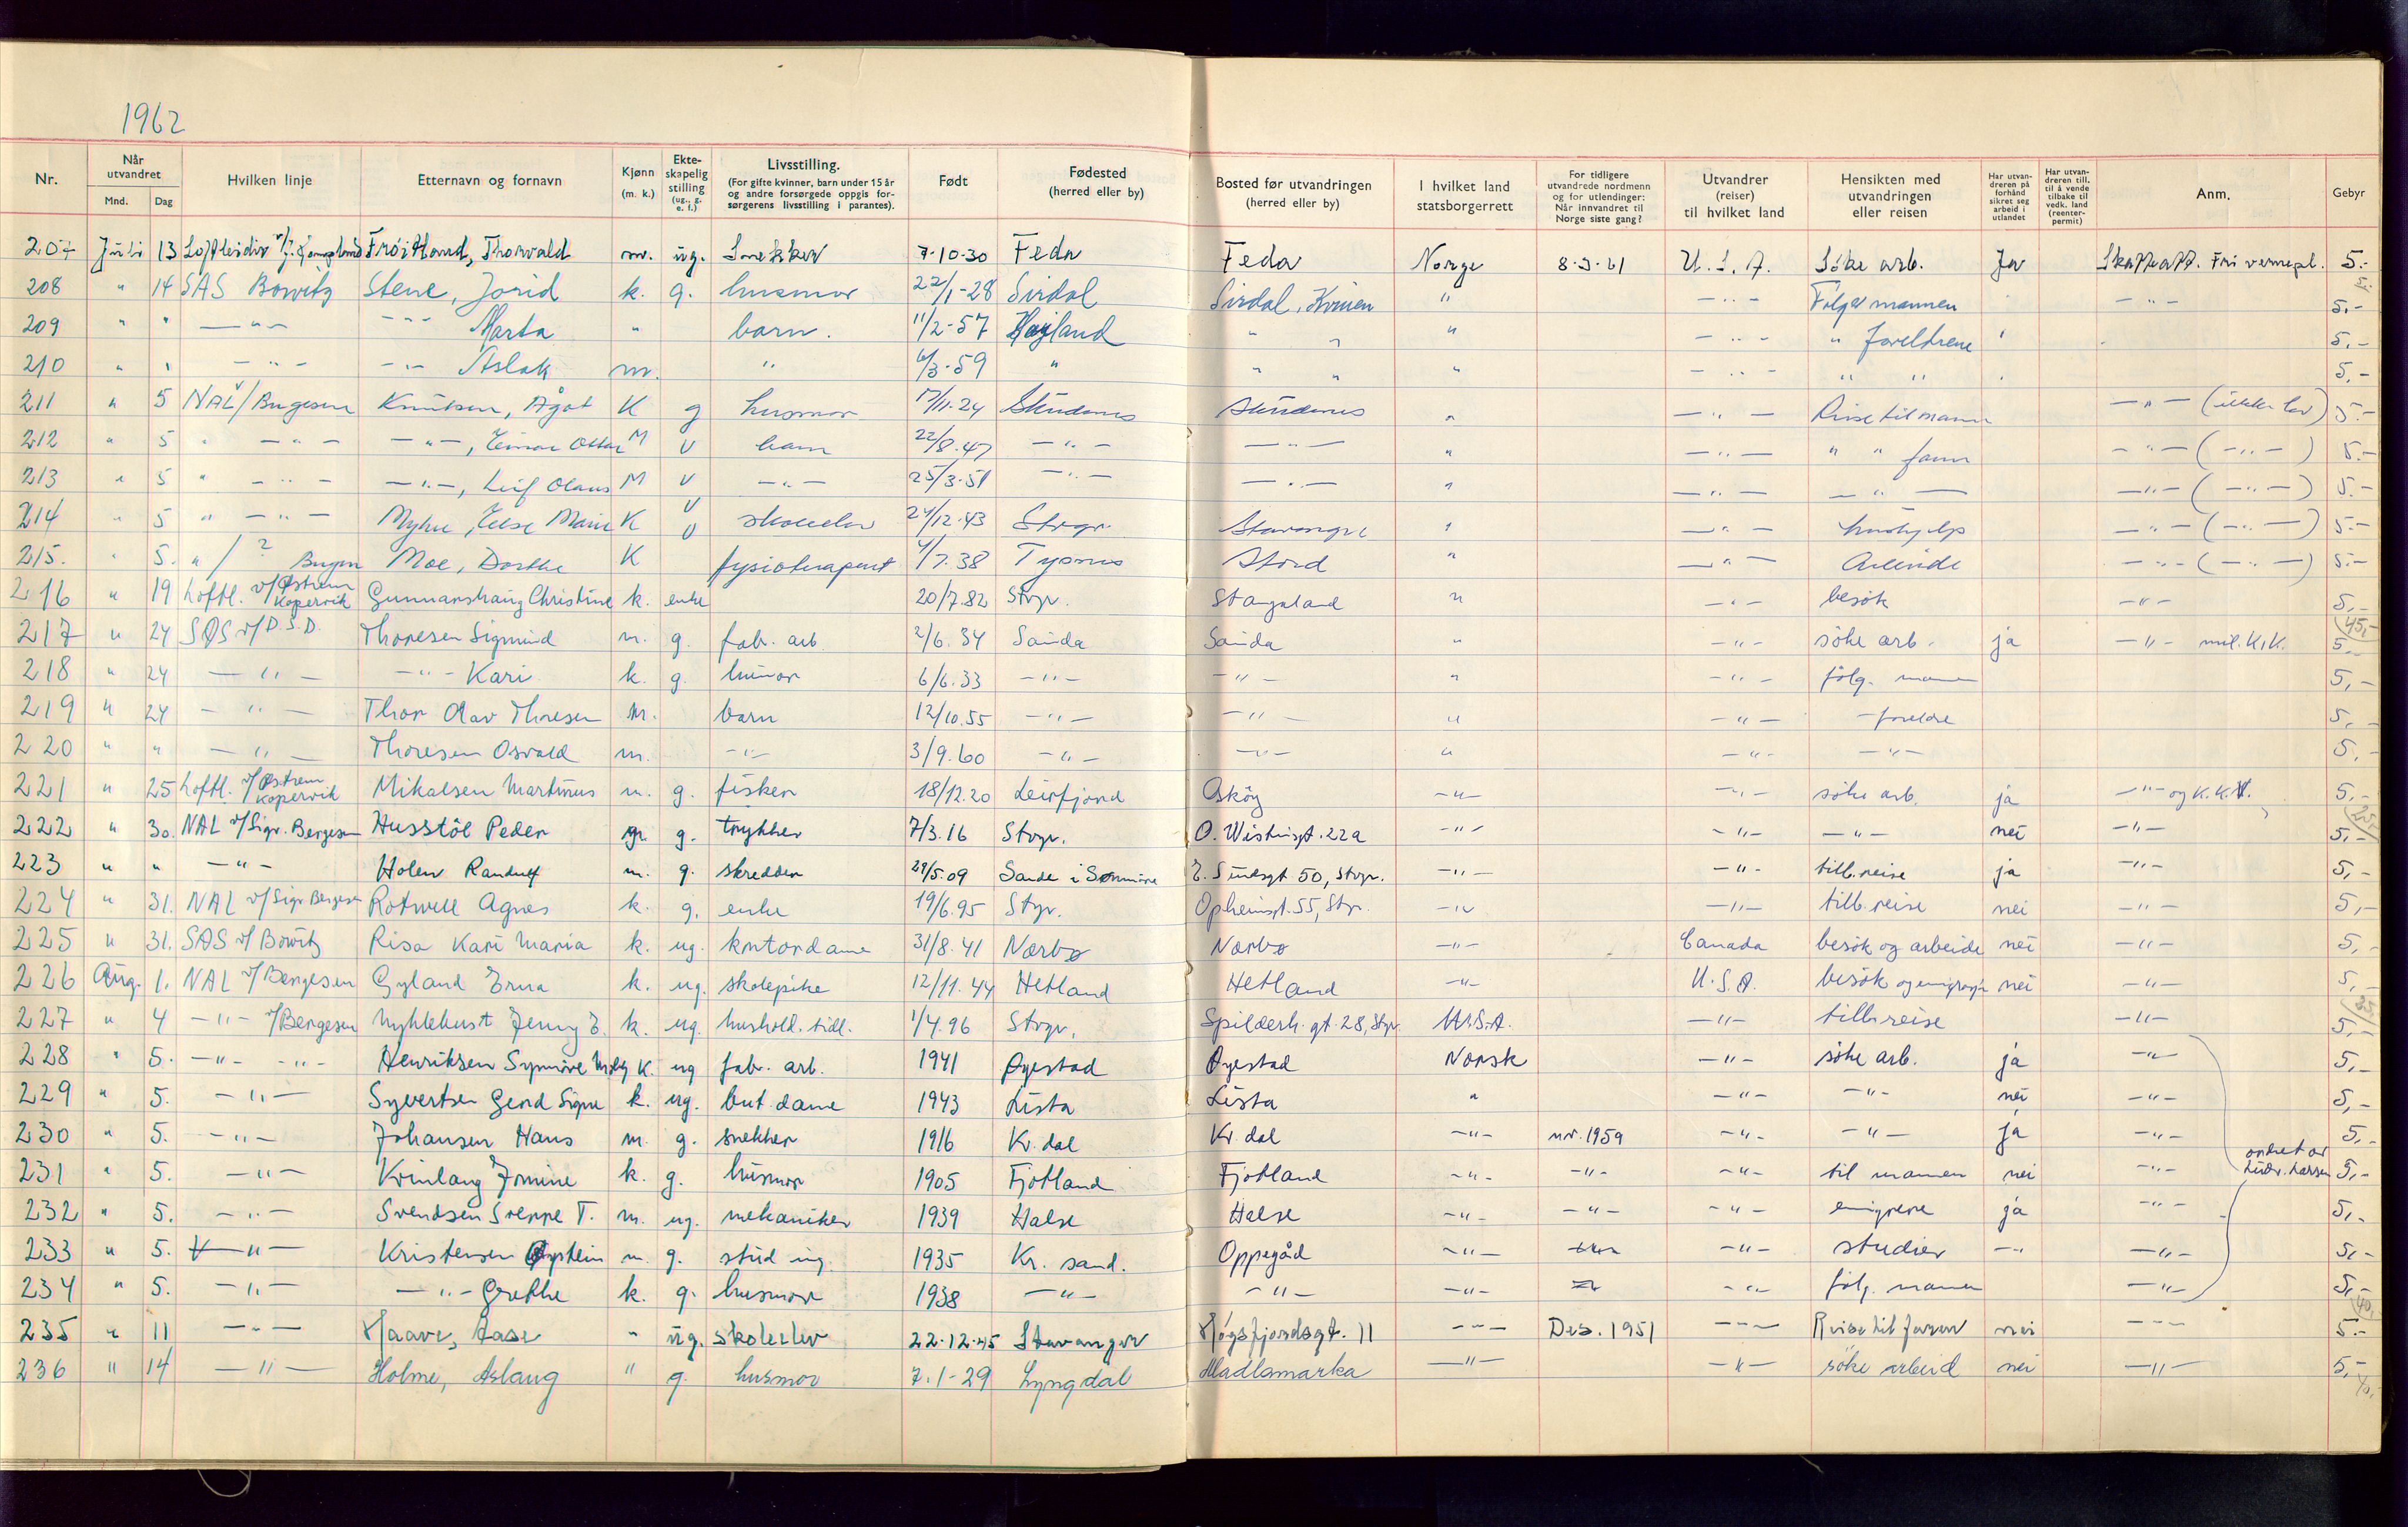 1962
Nr. Når utvandret Mnd. Dag Hvilken linje Etternavn og fornavn Kjønn (m. k.) Ekteskapelig stilling (ug., g. e. f.) Livsstilling. (For gifte kvinner, barn under 15 år og andre forsørgede oppgis forsørgerens livsstilling i parantes). Født Fødested (herred eller by) Bosted før utvandringen (herred eller by) I hvilket land statsborgerrett For tidligere utvandrede nordmenn og for utlendinger: Når innvandret til Norge siste gang? Utvandrer (reiser) til hvilket land Hensikten med utvandringen eller reisen Har utvandreren på forhånd sikret seg arbeid i utlandet Har utvandreren till. til å vende tilbake til vedk. land (reenterpermit) Anm. Gebyr
207 Juli 13 Loftleidir Thorvald m. ug. Snekker 7.10.30 Feda Feda Norge 8.3.61 U.S.A. Söke arb. Ja Skatteatt. Fri vernepl. 5.-
208 " 14 SAS Bowitz Stene, Jorid k. g. husmor 22/1-28 Sirdal Sirdal, Kvinen " -"- Følger mannen -"- 5.-
209 " " -"- -"- Marta " barn. 11/2-57 Høyland " " " -"- " foreldrene 5,-
210 " " -"- -"- Aslak m. " 6/3-59 " " " " -"- " " 5,-
211 " 5 NAL v/Bergesen Knutsen, Ågot K g husmor 17/11-24 Skudenes Skudenes " -"- Reise til mann -"- (ikke lov) 5.-
212 " 5 " -"- -"-, Einar Ottar M U barn 22/8.47 -"- -"- " -"- " " faren -"- (-"-) 5.-
213 " 5 " -"- -"-, Leif Olaus M U -"- 25/3.51 -"- -"- " -"- -"- -"- (-"-) 5.-
214 " 5 " -"- Myhre, Else Marie K U skoleelev 24/12.43 Stvgr. Stavanger " -"- hushjelp -"- (-"-) 5.-
215. " 5. " / ? Moe, Dorthe K fysioterapeut 4/7.38 Tysnes Stord " -"- Arbeide -"- (-"-) 5.-
216 " 19 Loftl. v/Østrem Kopervik Gunnarshaug Christine k. enke 20/7.82 Stvgr. Stangaland " -"- besøk -"- 5,-
217 " 24 SAS v/D.S.D. Thoresen Sigmund m. g. fab. arb. 2/6.34 Sauda Sauda " -"- söke arb. ja -"- mil. K.K. 5,-
218 " 24 -"- -"- Kari k. g. husmor 6/6.33 -"- -"- " -"- følg. mannen 5,-
219 " 24 -"- Thor Olav Thoresen m. barn 12/10.55 -"- -"- " -"- - foreldre 5,-
220 " " -"- Thoresen Osvald m. -"- 3/9.60 -"- -"- " -"- -"- 5,-
221 " 25 Loftl. v/Østrem Kopervik Mikalsen Martinus m. g. fisker 18/12.20 Leirfjord Askøy -"- -"- söke arb. ja -"- og K.K. 5,-
222 " 30. NAL v/Sigv. Bergesen Husstøl Peder m. g. trykker 7/3.16 Stvgr. O. Wistingt. 22a -"- -"- -"- nei -"- 5,-
223 " " -"- Holen Randulf m. g. skredder 29/5.09 Sande i Sunnmøre E. Sundsgt 50, Stvgr. -"- -"- tilb. reise ja -"- 5,-
224 " 31. NAL v/Sigv. Bergesen Rotwell Agnes k. g. enke 19/6.95 Stvgr. Opheimsgt. 55, Stvgr. -"- -"- tilb. reise nei -"- 5,-
225 " 31. SAS v/Bowitz Risa Kari Maria k. ug. kontordame 31/8.41 Nærbø Nærbø -"- Canada besök og arbeide nei -"- 5,-
226 Aug. 1. NAL v/Bergesen Gyland Erna k. ug. skolepike 12/11.44 Hetland Hetland -"- U.S.A. besök og nei -"- 5,-
227 " 4 -"- v/Bergesen Nyklekust Jenny E. k. ug. hushold. tidl. 1/4.96 Stvgr. Spilderh. gt. 28, Stvgr. U.S.A. -"- tilb. reise -"- 5,-
228 " 5. -"- -"- Henriksen Synnöve k. ug fabr. arb. 1941 Øyestad Øyestad Norsk -"- söke arb. ja -"- 5,-
229 " 5. -"- Syvertsen Gerd Signe k. ug. but. dame 1943 Lista Lista " -"- -"- nei -"- 5,-
230 " 5. -"- Johansen Hans m. g. snekker 1916 Kv. dal Kv. dal -"- nov. 1959 -"- -"- ja -"- 5,-
231 " 5. -"- Kvinlaug Jonine k. g. husmor 1905 Fjotland Fjotland -"- -"- -"- til mannen nei -"- ordnet av Ludv. Larsen 5,-
232 " 5. -"- Svendsen Sreppe T. m. ug. mekaniker 1939 Halse Halse -"- -"- -"- emigrere ja -"- 5,-
233 " 5. -"- Kristensen Øystein m. g. stud ing. 1935 Kr. sand. Oppegåd -"- -"- studier -"- -"- 5,-
234 " 5. -"- -"- Grethe k. g. husmor 1938 -"- -"- -"- -"- følg. mannen -"- 5,-
235 " 11 -"- Haave, Aase " ug. skoleelev 22.12.45 Stavanger Høgsfjordsgt. 11 -"- Des. 1951 -"- Reise til faren nei -"- 5.-
236 " 14 -"- Holme, Aslaug " g. husmor 7.1-29 Lyngdal Madlamarka -"- -"- söke arbeid nei -"- 5,-